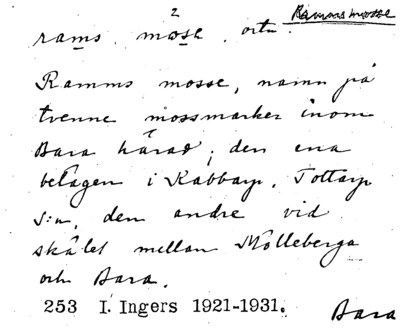 Ramms mosse
2
rams mose, ortn.
Ramms mosse, namn på
tvenne mossmarker inom
Bara härad; den ena
belägen i Kabbarp, Tottarp
s:n, den andre vid
skälet mellan Mölleberga
och Bara.
253 I. Ingers 1921-1931.
Bara